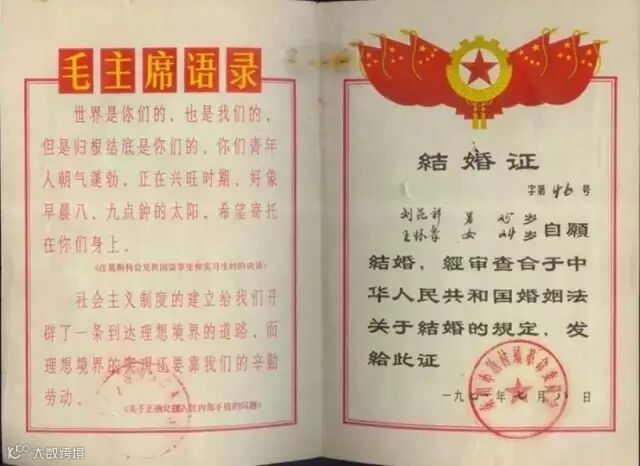 毛主席语录
世界是你们的、也是我们的,
但是归根结底是你们的,你们青年
人朝气蓬勃,正在兴旺时期,好像
早晨八、九点钟的太阳。希望寄托
在你们身上。
《在莫斯科会见我国留学生和实习生时的谈话》
社会主义制度的建立给我们开
辟了一条到达理想境界的道路,而
理想境界的实现还要靠我们的辛勤
劳动。
《关于正确处理人民内部矛盾的问题》
結婚证
字第 46 号
男 25 岁
女 24 岁 自願
結婚,經审查合于中
华人民共和国婚姻法
关于結婚的規定,发
給此证
一九七 年七月八日
大数跨境